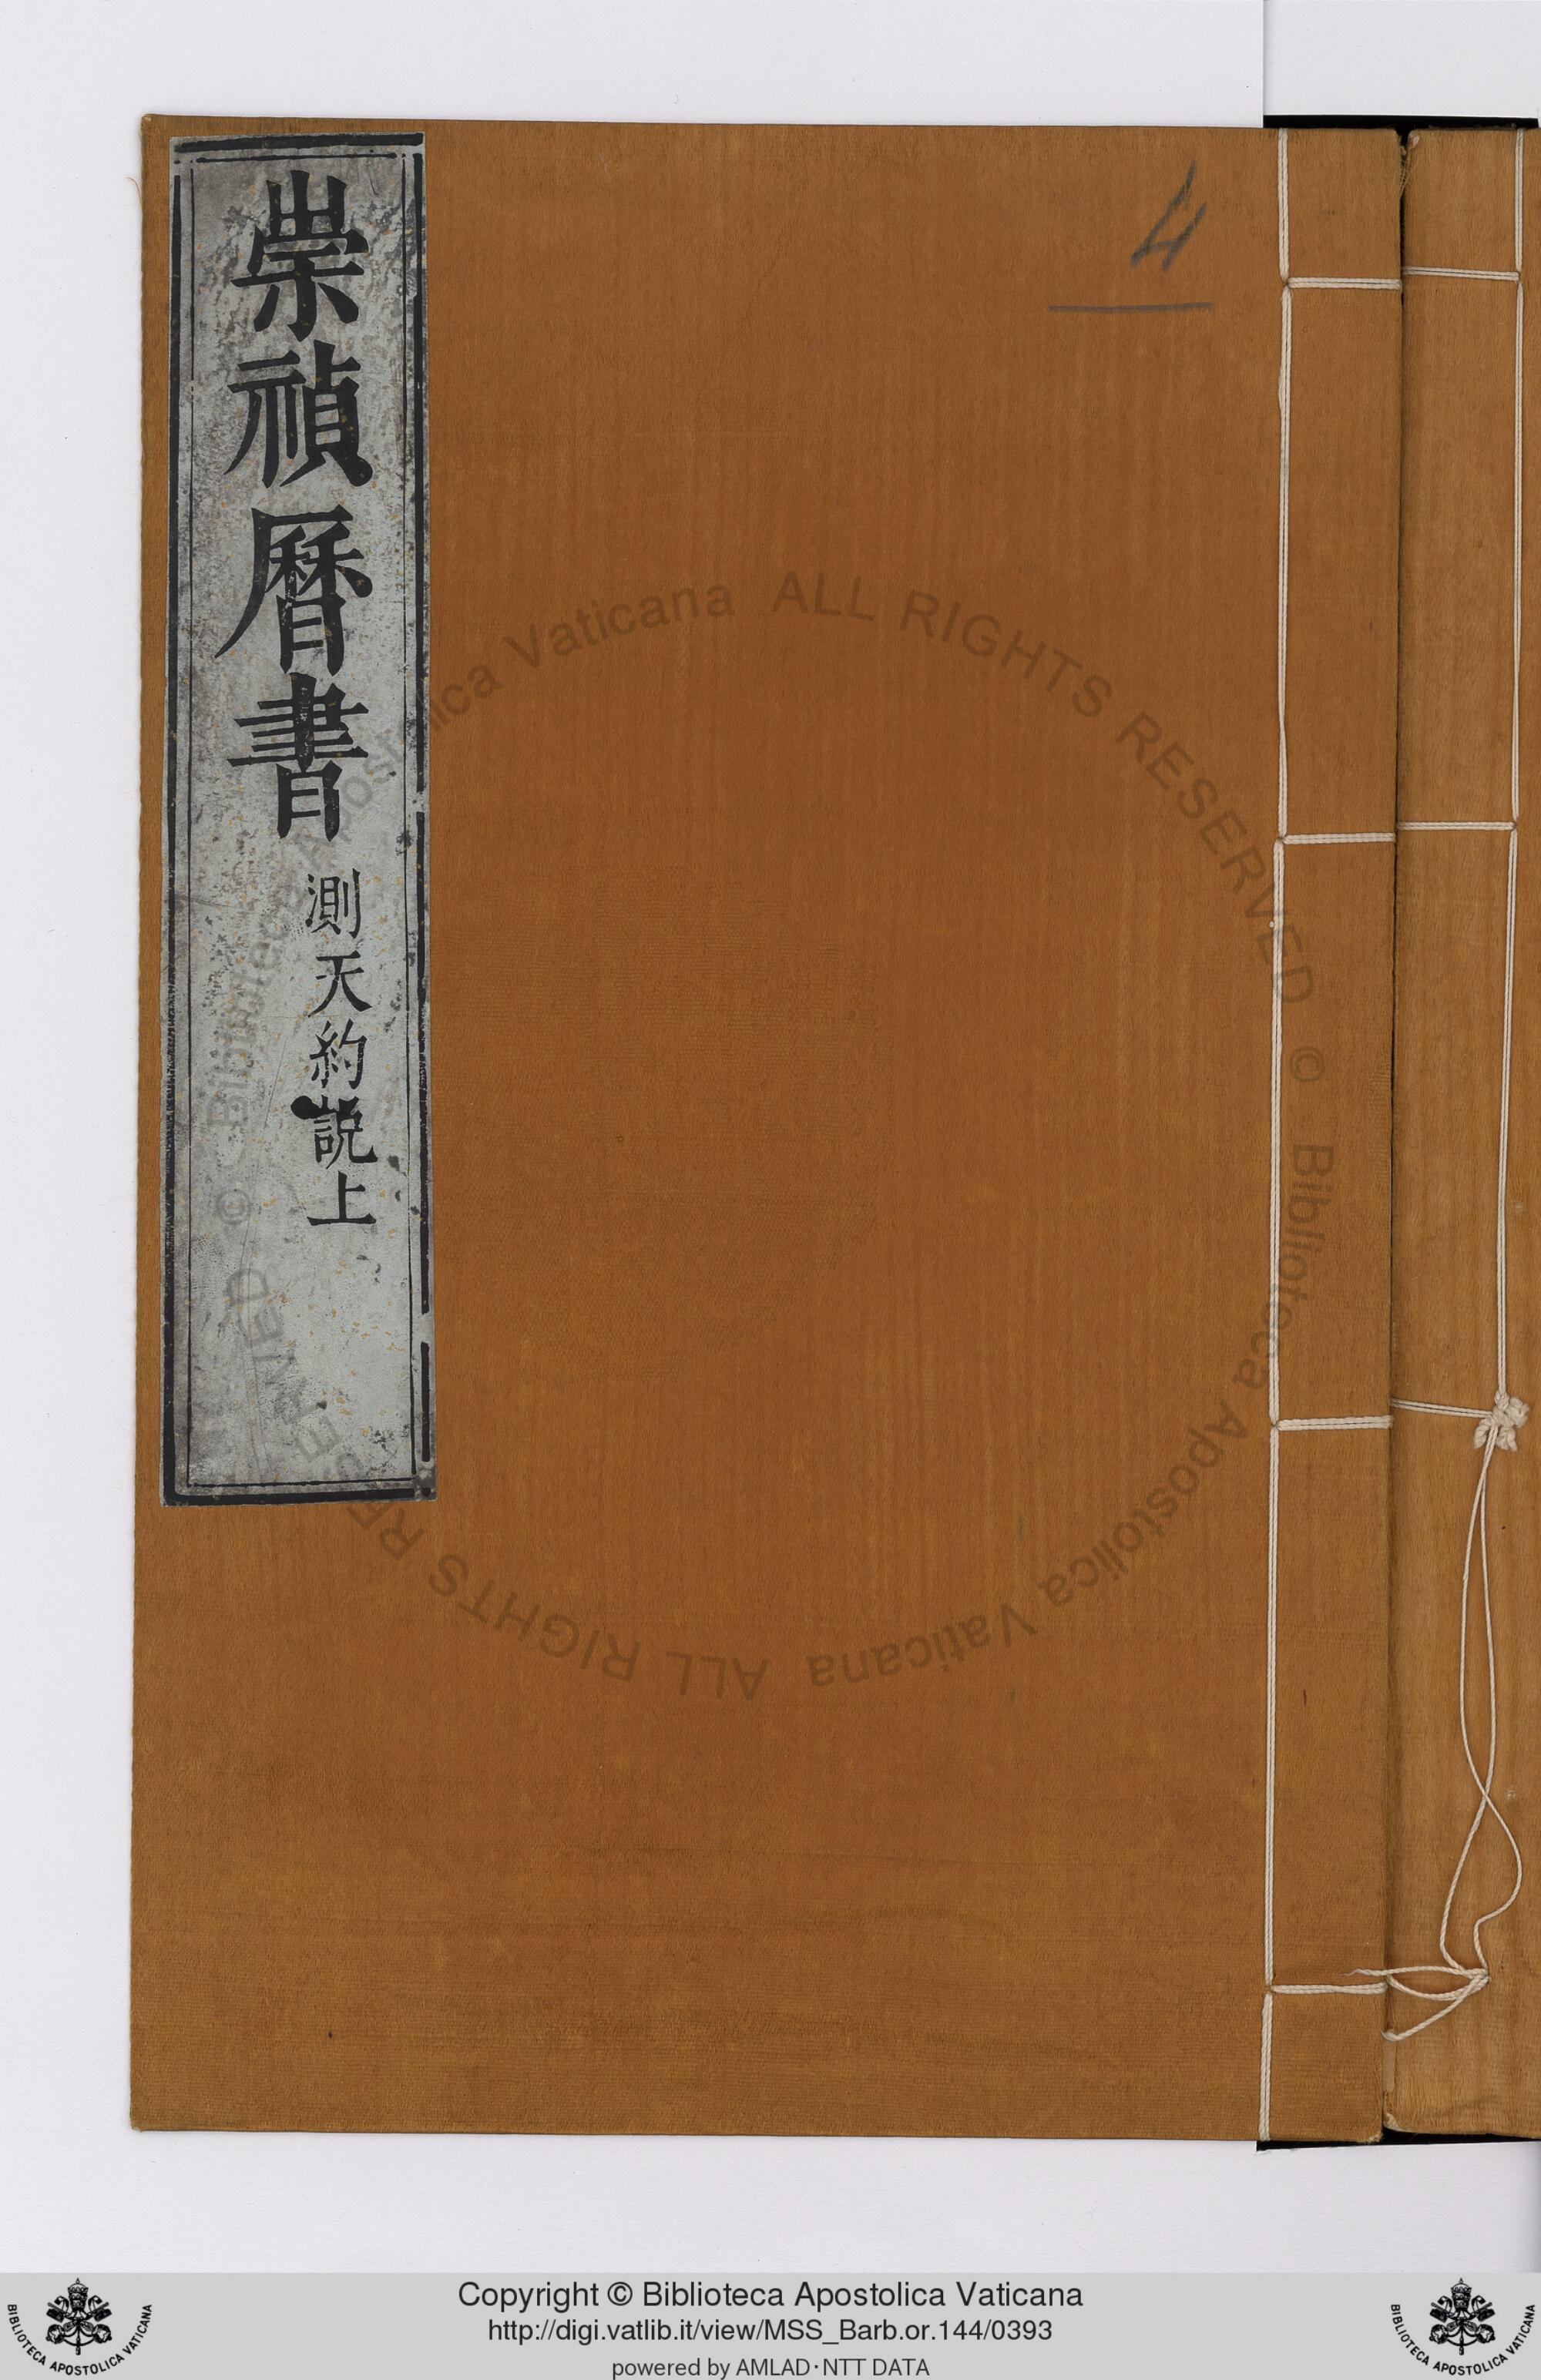 崇禎曆書
測天約說上
4
© Biblioteca Apostolica Vaticana ALL RIGHTS RESERVED © Biblioteca Apostolica Vaticana ALL RIGHTS RESERVED
Copyright © Biblioteca Apostolica Vaticana
http://digi.vatlib.it/view/MSS_Barb.or.144/0393
powered by AMLAD·NTT DATA
BIBLIOTECA APOSTOLICA VATICANA
BIBLIOTECA APOSTOLICA VATICANA